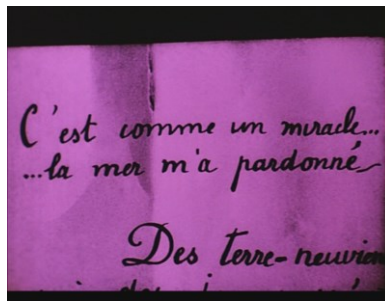 C'est comme un miracle...
...la mer m'a pardonné
Des terre-neuvien